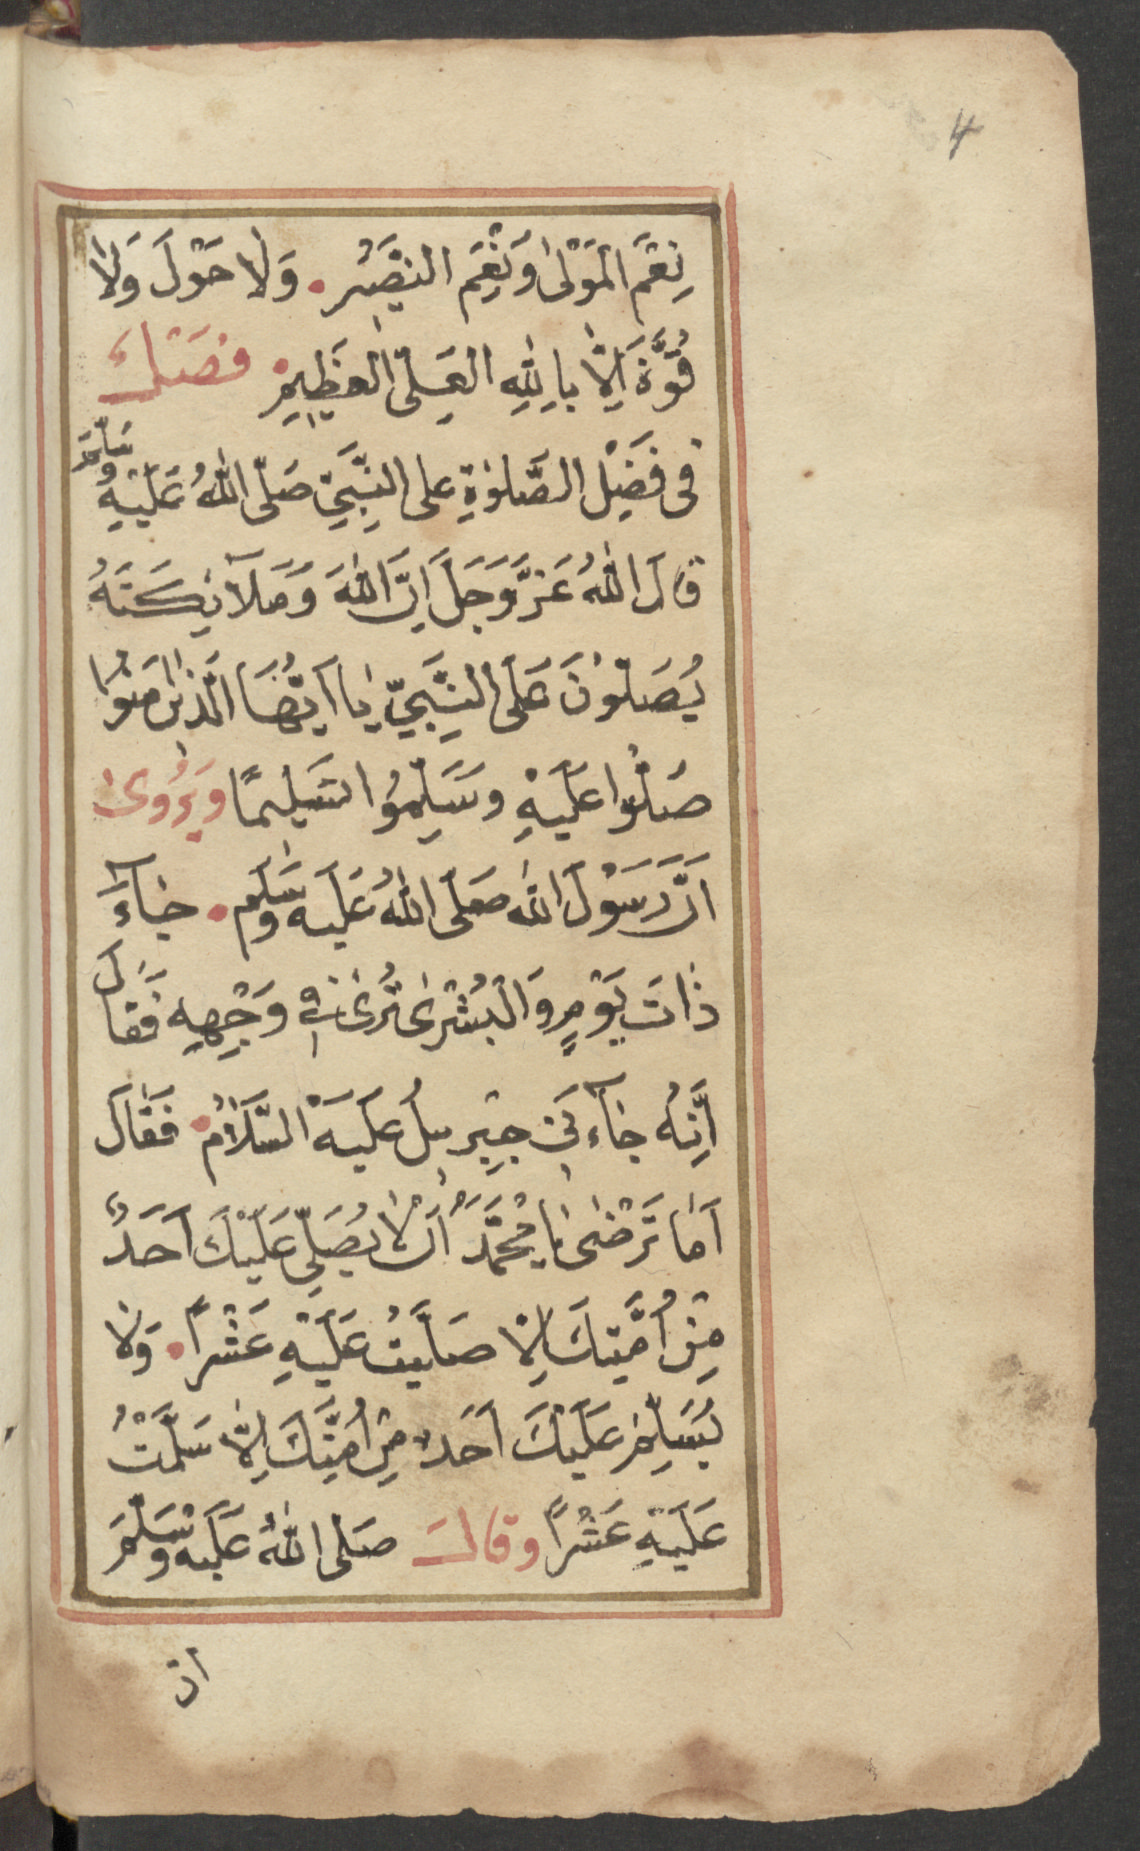 4
نِعْمَ الْمَوْلىٰ وَنِعْمَ النَّصِيْرُ وَلَا حَوْلَ وَلَا
قُوَّةَ اِلَّا بِاللّٰهِ الْعَلِىِّ الْعَظِيْمِ فَصْلٌ
فى فَضْلِ الصَّلٰوةِ على النَّبِىِّ صَلَّى اللّٰهُ عَلَيْهِ وَسَلَّمَ
قالَ اللّٰهُ عَزَّ وَجَلَّ اِنَّ اللّٰهَ وَمَلٰٓائِكَتَهُ
يُصَلُّوْنَ عَلَى النَّبِىِّ يٰا اَيُّهَا الَّذِيْنَ اٰمَنُوْا
صَلُّوْا عَلَيْهِ وَسَلِّمُوْا تَسْلِيْمًا وَيُرْوٰى
اَنَّ رَسُوْلَ اللّٰه صَلَّى اللّٰهُ عَلَيْه وَسَلَّم جٰٓاءَ
ذٰاتَ يَوْمٍ وَالْبُشْرٰى تُرٰى فِى وَجْهِهِ فَقٰالَ
اِنَّهُ جٰٓاءَنِى جِبْرِيلُ عَلَيْهِ السَّلَامُ فَقٰالَ
اَمٰا تَرْضٰى يٰا مُحَمَّدُ اَنْ لَا يُصَلِّىَ عَلَيْكَ اَحَدٌ
مِنْ اُمَّتِكَ اِلَّا صَلَّيْتُ عَلَيْهِ عَشْرًا وَلَا
يُسَلِّمَ عَلَيْكَ اَحَدٌ مِنْ اُمَّتِكَ اِلَّا سَلَّمْتُ
عَلَيْهِ عَشْرًا وَقالَ صَلَّى اللّٰهُ عَلَيْه وَسَلَّمَ
ان